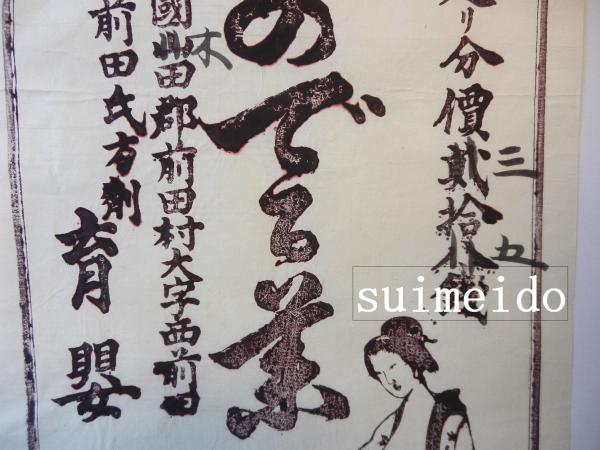 り分價貳拾八錢
三
五
のでる薬
國山田郡前田村大字西前田
木
前田氏方劑
育嬰
suimeido